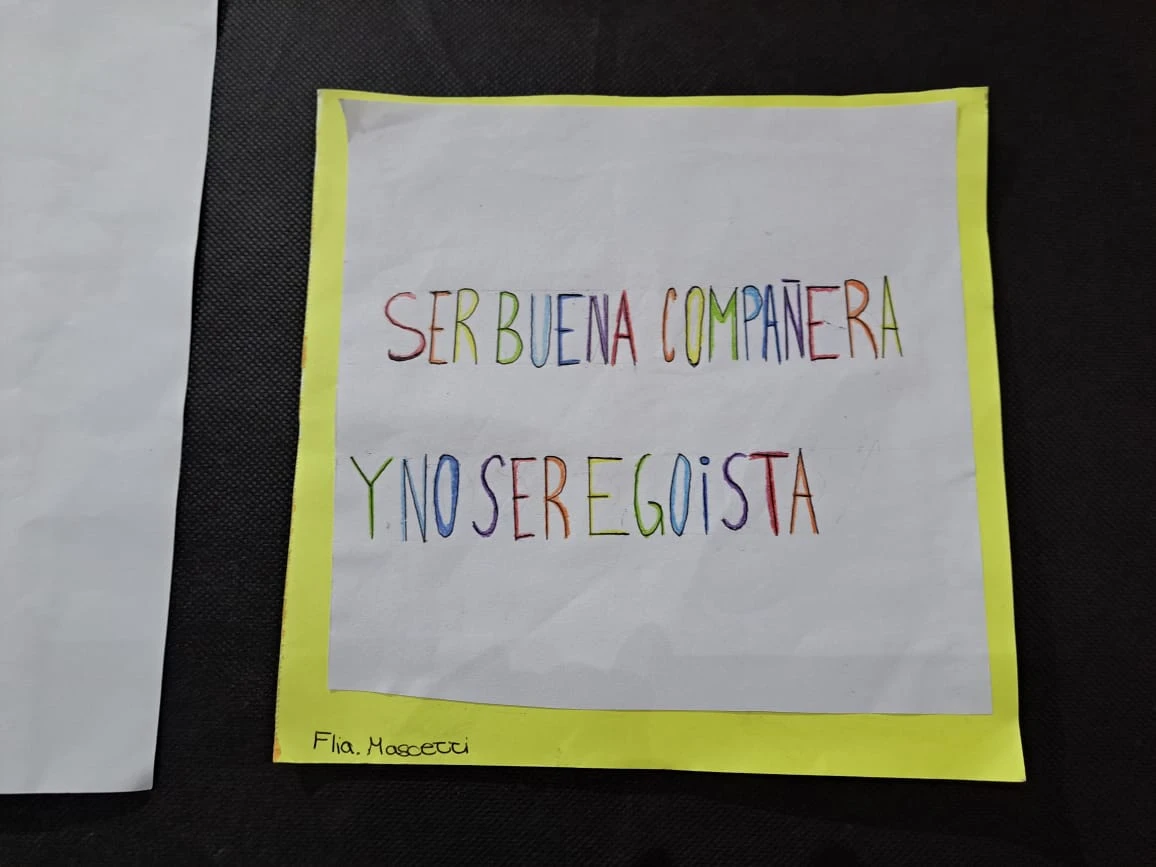 SER BUENA COMPAÑERA
Y NO SER EGOiSTA
Flia. Mascetti